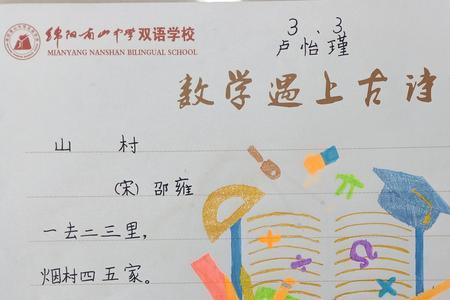 绵阳南山中学双语学校
MIANYANG NANSHAN BILINGUAL SCHOOL
3.3
卢怡瑾
数学遇上古诗
山村
(宋) 邵雍
一去二三里，
烟村四五家。